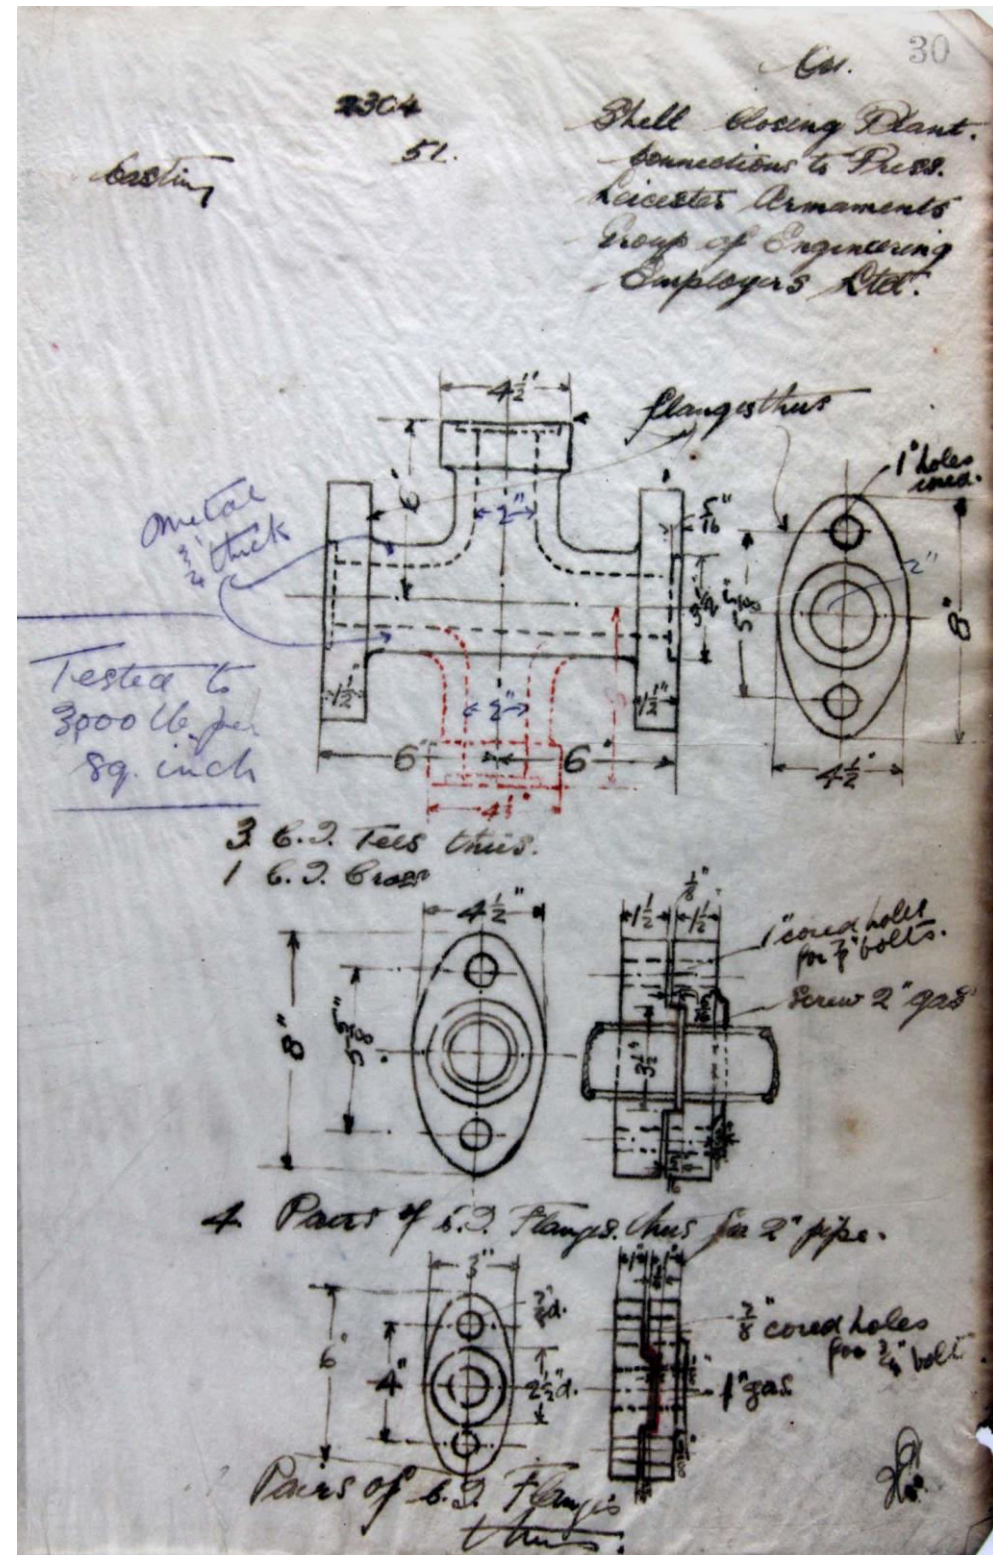 30
2304
51.
Casting
Shell Closing Plant.
Connections to Press.
Leicester Armaments
Group of Engineering
Employers Ltd.
4½"
flanges thus
1" holes
cored.
6"
2"
5/16"
Metal
¾" thick
3½"
5⅝"
2"
8"
1½"
1½"
2"
6"
6"
4½"
4½"
Tested to
3000 lb. per
sq. inch
3 C.I. Tees thus.
1 C.I. Cross
4½"
1½"
⅛"
1½"
1" cored holes
for ⅞" bolts.
Screw 2" gas
8"
5⅝"
3½"
4 Pairs of C.I. Flanges thus for 2" pipe.
3"
1"
⅞"d.
6"
4"
2½"d.
⅞" cored holes
for ¾" bolt
1" gas
Pairs of C.I. Flanges
thus.